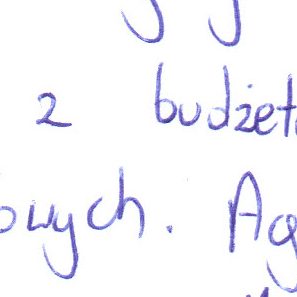 z budżet
owych. Ag